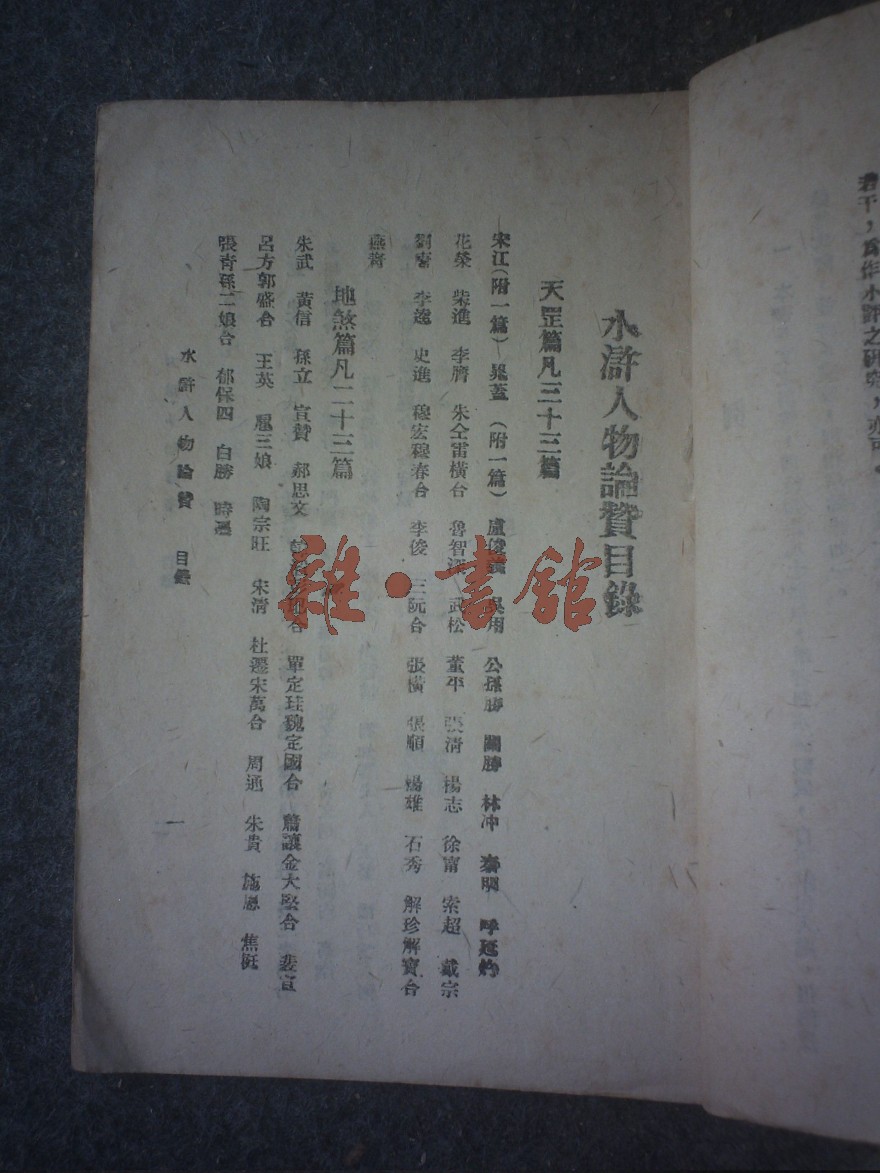 若干,爲作水滸之研究,亦可。
水滸人物論贊目錄
天罡篇凡三十三篇
宋江(附一篇) 晁蓋 (附一篇) 盧俊義 吳用 公孫勝 關勝 林冲 秦明 呼延灼
花榮 柴進 李應 朱仝雷橫合 魯智深 武松 董平 張清 楊志 徐甯 索超 戴宗
劉唐 李逵 史進 穆宏穆春合 李俊 三阮合 張橫 張順 楊雄 石秀 解珍解寶合
燕青
地煞篇凡二十三篇
朱武 黃信 孫立 宣贊 郝思文 合 單定珪魏定國合 蕭讓金大堅合 裴宣
呂方郭盛合 王英 扈三娘 陶宗旺 宋清 杜遷宋萬合 周通 朱貴 施恩 焦挺
張青孫二娘合 郁保四 白勝 時遷
水滸人物論贊 目錄
一
雜·書館